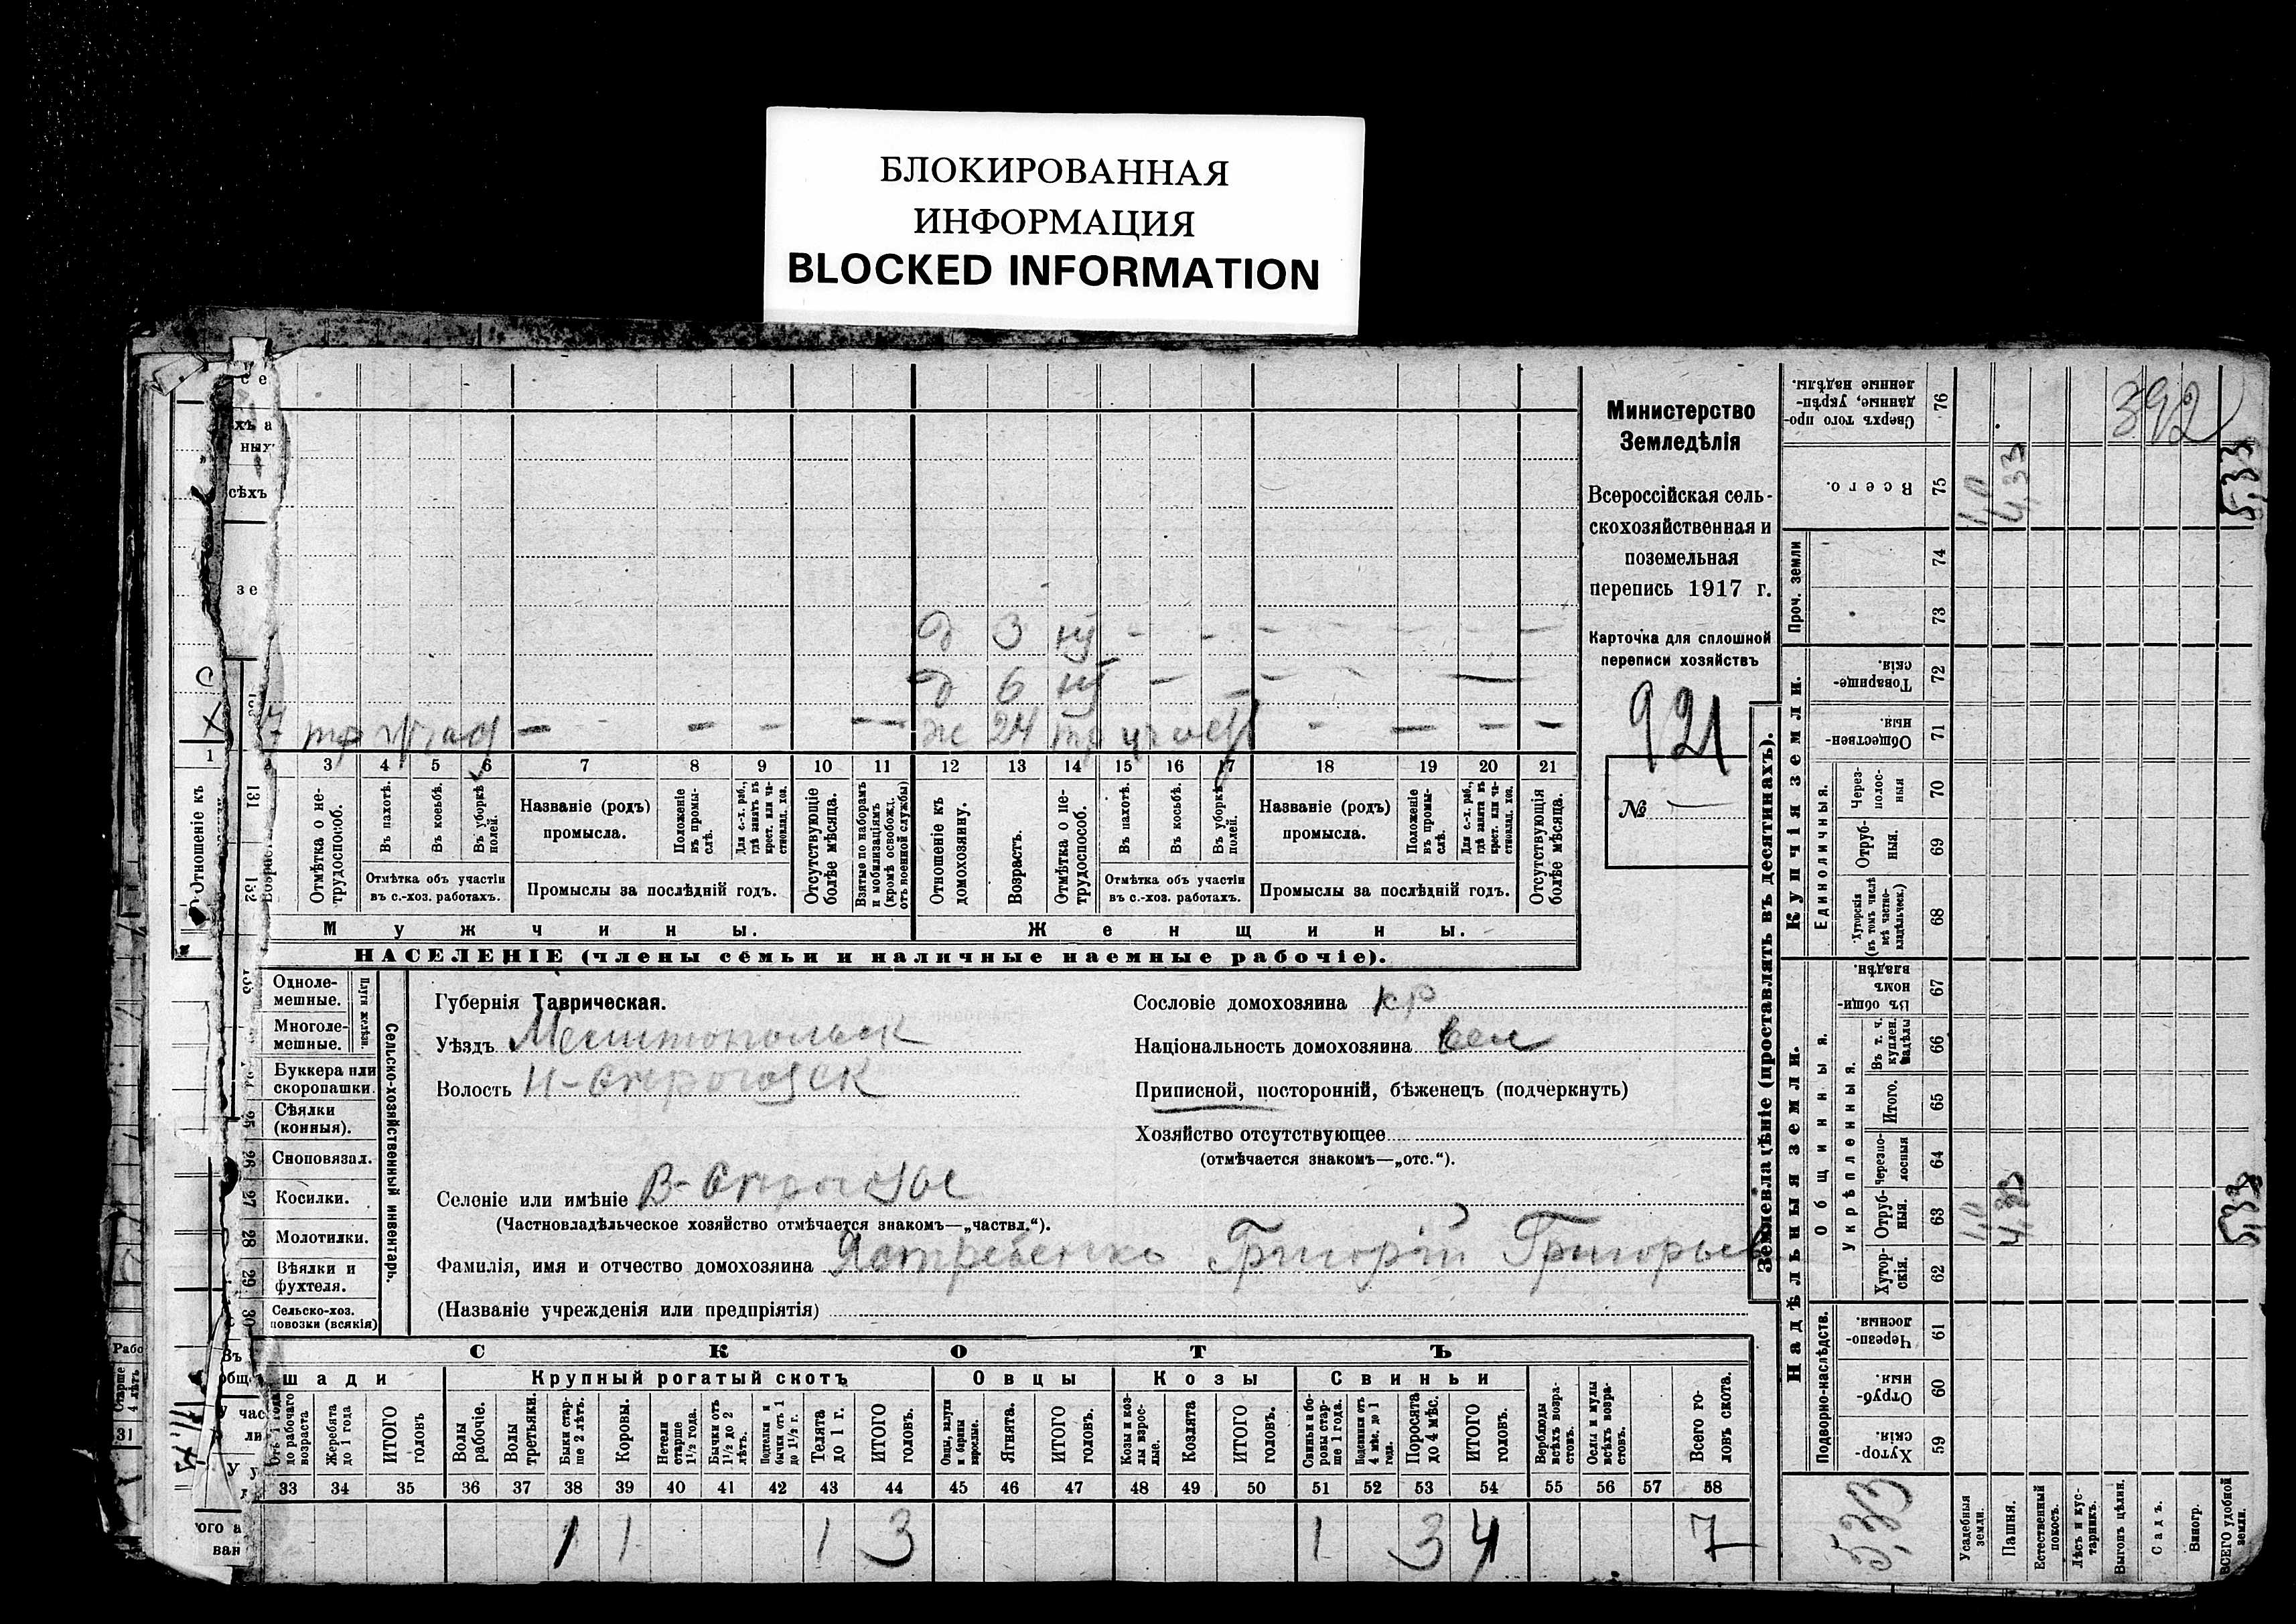 БЛОКИРОВАННАЯ
ИНФОРМАЦИЯ
BLOCKED INFORMATION
Министерство
Земледѣлія
Всероссійская сель-
скохозяйственная и
поземельная
перепись 1917 г.
Карточка для сплошной
переписи хозяйствъ
921
№ —
392
д 3 — — — — — — —
д 6 — — — —
тр — — — — — ж 24 тр — — — —
1 3 4 5 6 7 8 9 10 11 12 13 14 15 16 17 18 19 20 21
Отношеніе къ
Отмѣтка о не-
трудоспособ.
Въ пахотѣ.
Въ косьбѣ.
Въ уборкѣ
полей.
Отмѣтка объ участіи
въ с.-хоз. работахъ.
Названіе (родъ)
промысла.
Положеніе
въ промы-
слѣ.
Для с.-х. раб.,
гдѣ занятъ въ
крест. или ча-
стновлад. хоз.
Промыслы за послѣдній годъ.
Отсутствующіе
болѣе мѣсяца.
Взятые по наборамъ
и мобилизаціямъ
(кромѣ освобожд.
отъ военной службы)
Отношеніе къ
домохозяину.
Возрастъ.
Отмѣтка о не-
трудоспособ.
Въ пахотѣ.
Въ косьбѣ.
Въ уборкѣ
полей.
Отмѣтка объ участіи
въ с.-хоз. работахъ.
Названіе (родъ)
промысла.
Положеніе
въ промы-
слѣ.
Для с.-х. раб.,
гдѣ занятъ въ
крест. или ча-
стновлад. хоз.
Промыслы за послѣдній годъ.
Отсутствующія
болѣе мѣсяца.
Мужчины.
Женщины.
НАСЕЛЕНІЕ (члены семьи и наличные наемные рабочіе).
Одноле-
мешные.
Многоле-
мешные.
Плуги желѣз.
Буккера или
скоропашки.
Сѣялки
(конныя).
Сноповязал.
Косилки.
Молотилки.
Вѣялки и
фухтеля.
Сельско-хоз.
повозки (всякія)
Сельско-хозяйственный инвентарь.
25
26
27
28
29
30
131
132
Губернія Таврическая.
Уѣздъ Мелитопольск
Волость Н-Серогозск
Селеніе или имѣніе В-Серогозы
(Частновладѣльческое хозяйство отмѣчается знакомъ—„частвл.“).
Фамилія, имя и отчество домохозяина Ястребенко Григорій Григорьев
(Названіе учрежденія или предпріятія)
Сословіе домохозяина кр
Національность домохозяина вел
Приписной, посторонній, бѣженецъ (подчеркнуть)
Хозяйство отсутствующее
(отмѣчается знакомъ—„отс.“).
СКОТЪ
шади
Крупный рогатый скотъ
Овцы
Козы
Свиньи
Отъ 1 года
до рабочаго
возраста
Жеребята
до 1 года
ИТОГО
головъ
Волы
рабочіе.
Волы
третьяки.
Быки стар-
ше 2 лѣтъ.
Коровы.
Нетели
старше
1½ года.
Бычки отъ
1½ до 2
лѣтъ.
Подтелки и
бычки отъ 1
до 1½ г.
Телята
до 1 г.
ИТОГО
головъ.
Овцы, валухи
и бараны
взрослые.
Ягнята.
ИТОГО
головъ.
Козы и коз-
лы взрос-
лые.
Козлята
ИТОГО
головъ.
Свиньи и бо-
ровы стар-
ше 1 года.
Подсвинки отъ
4 мѣс. до 1
года.
Поросята
до 4 мѣс.
ИТОГО
головъ.
Верблюды
всѣхъ возра-
стовъ.
Ослы и мулы
всѣхъ возра-
стовъ.
Всего го-
ловъ скота.
33 34 35 36 37 38 39 40 41 42 43 44 45 46 47 48 49 50 51 52 53 54 55 56 57 58
1 1 1 3 1 3 4 7
Землевладѣніе (проставлять въ десятинахъ).
Надѣльныя земли.
Купчія земли.
Проч. земли
Подворно-наслѣдств.
Общинныя.
Укрѣпленныя.
Единоличныя.
Сверхъ того про-
данные, укрѣп-
ленные надѣлы.
76
Всего.
75
1,0
4,33
5,33
74
73
Товарище-
скія.
72
Обществен-
ныя.
71
Через-
полос-
ныя
70
Отруб-
ныя.
69
Хуторскія
(въ томъ числѣ
всѣ частно-
владѣльческ.)
68
Въ общин-
номъ
владѣн.
67
Въ т. ч.
куплен.
надѣлы
66
Итого.
65
Черезпо-
лосныя
64
Отруб-
ныя.
63
1,0
4,33
5,33
Хутор-
скія.
62
Черезпо-
лосныя.
61
Отруб-
ныя.
60
Хутор-
скія.
59
5,33
Усадебныя
земли.
Пашня.
Естественный
покосъ.
Лѣсъ и кус-
тарникъ.
Выгонъ цѣлин.
Садъ.
Виногр.
ВСЕГО удобной
земли.